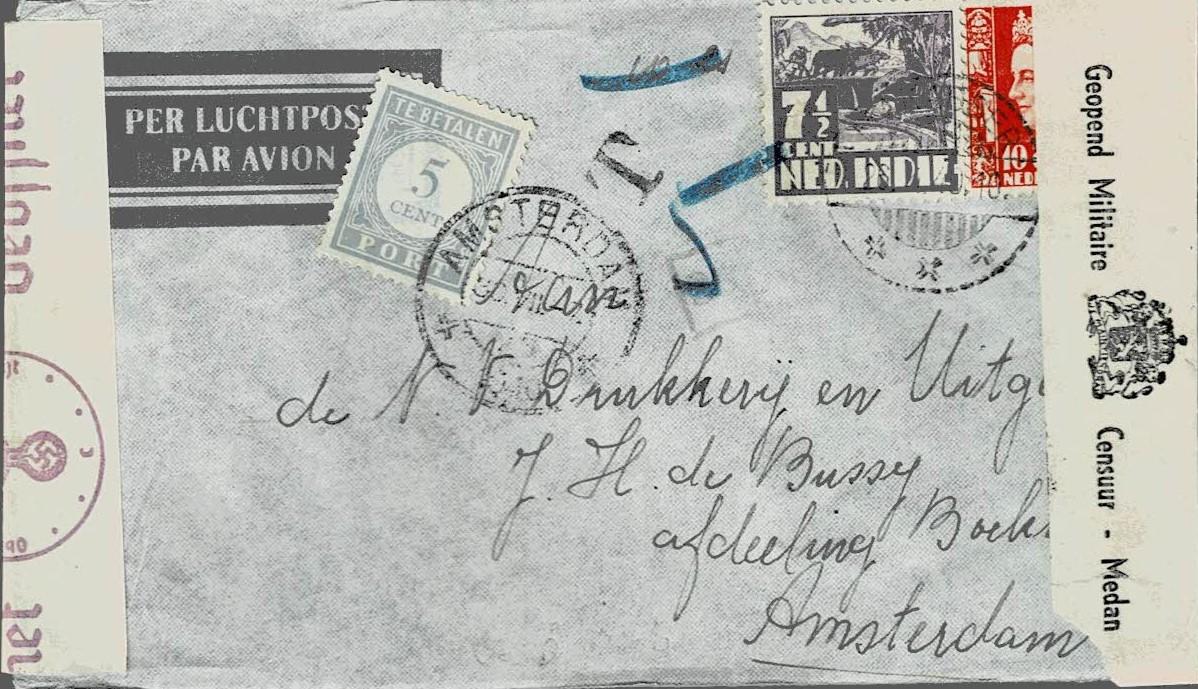 PER LUCHTPOS
PAR AVION
TE BETALEN
5
CENT
PORT
AMSTERDA
T
7½
CENT
NED. INDIE
10
NED
de N. V. Drukkerij en Uitg
J. H. de Bussy
afdeeling Boek
Amsterdam
Geopend Militaire Censuur - Medan